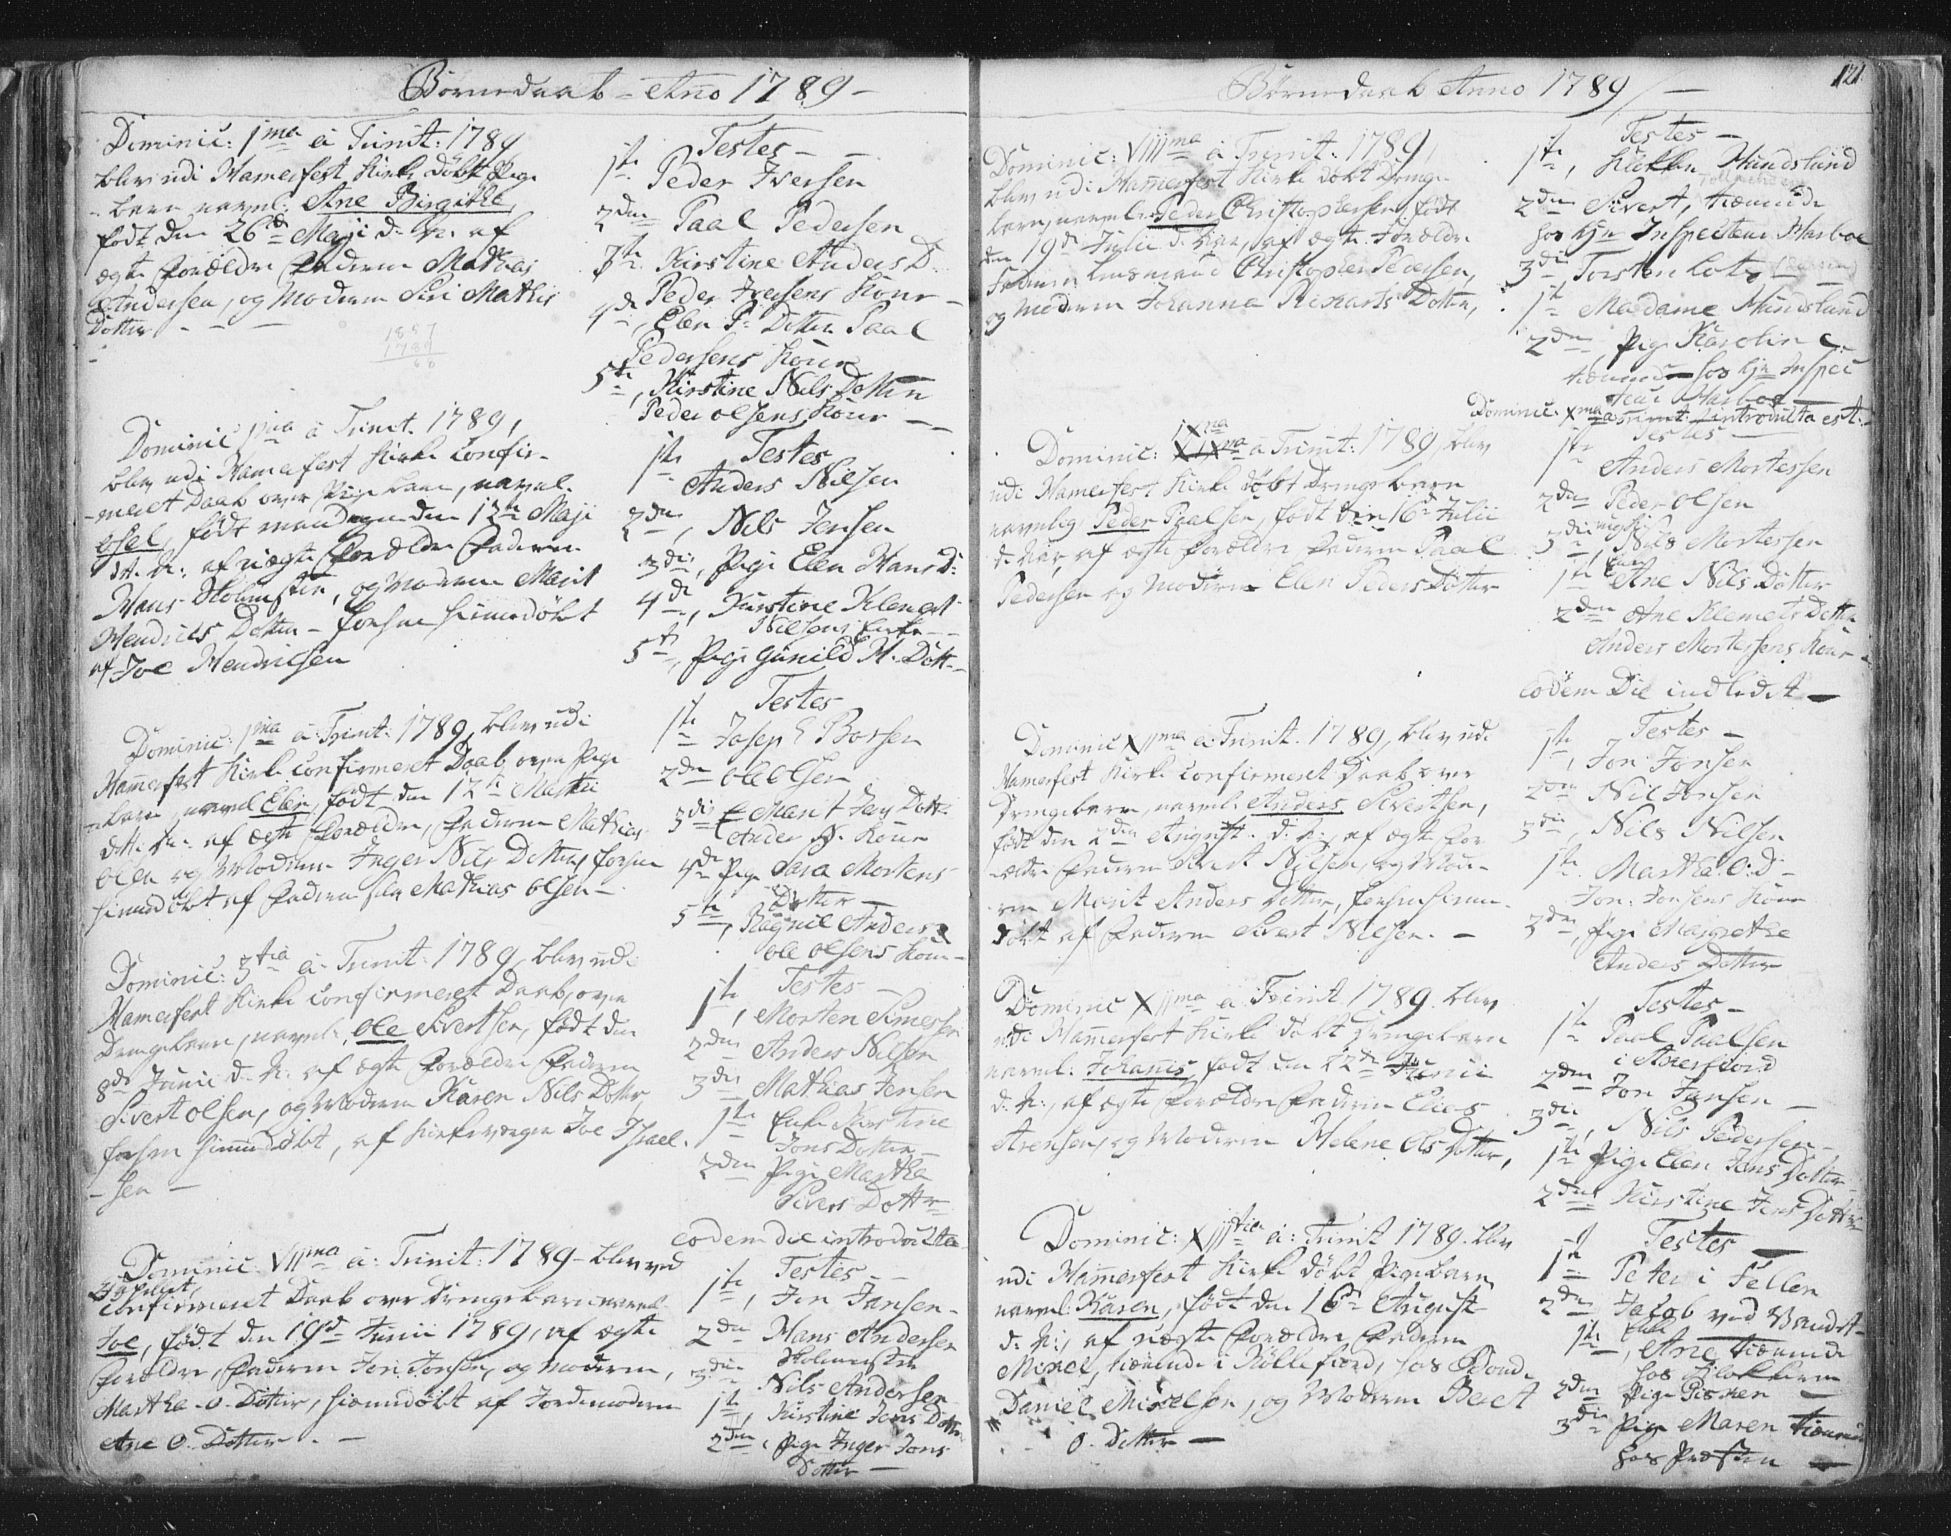 Børnedaab - Anno 1789 -
Dominic: 1ma à Trinit: 1789
blev udi Hamerfest Kirke döbt Pige
- barn navnl: Ane Birgithe,
födt den 26de Maji d. A: af
ægte Forældre Faderen Mathias
Andersen, og Moderen Siri Mathis
Dotter - - -
1857
1789
60
Testes - -
1ste Peder Iversen
2den Paal Pedersen
3die Kirstine Anders D.
Peder Iversens Kone -
4de, Elen P: Dotter Paal
Pedersens Kone
5te, Kirstine Nils Dotter
Peder Olsens Kone - -
Dominic 1ma à Trinit. 1789,
blev udi Hamerfest Kirke confir-
-meret Daab over Pige barn, navnl.
födt mandagen den 12te Maji
d. A: af uægte Forældre Faderen
Hans Holmesten, og Moderen Marit
Hendrics Dotter - forhen hiemedöbt
af Joe Hendricsen
Testes
1ste Anders Nilsen
2den, Nils Jensen
3die, Pige Elen Hans D:
4de, Kirstine Klemet
Nilsens Enke - -
5te, Pige Gunild H. Dott -
Dominic: 1ma à Trinit: 1789, blev udi
Hamerfest Kirke confirmeret Daab over Pige
- barn, navnl Elen, födt den 12te Martii
d. A: af ægte Forældre, Faderen Mathias
Olsen og Moderen Inger Nils Dotter, forhen
hiemdöbt af Faderen selv Mathias Olsen -
Testes
1ste Joseph Borsen
2den Ole Olsen
3die Marit Jens Dott:
Anders A. Kone
4de Pige Sara Mortens
Dotter -
5te, Ragnil Anders D
Ole Olsens Kone -
Dominic: 3tia à Trinit: 1789, blev udi
Hamerfest Kirke confirmeret Daab, over
Drengebarn, navnl: Ole Sivertsen, födt den
8de Junii d. A: af ægte Forældre Faderen
Sivert Olsen, og Moderen Karen Nils Dotter,
forhen hiemmdöbt, af Kirkeværgen Joe Israel-
- sen -
Testes -
1ste, Morten Simesen
2den Anders Nilsen
3die Mathias Jensen
1ste Enke Kirstine
Jons Dotter -
2den Pige Martha
Sivers Dotter
eodem die introducta
Dominic: VIIma à: Trinit: 1789 - blev ved
confirmeret Daab over Drengebarn navnl:
Joe, födt den 19de Junii 1789, af ægte
Forældre, Faderen Jon Jonsen, og Moderen,
Martha O. Dotter, hiemmdöbt af Jordemoderen
Ane O. Dotter - . -
Testes - -
1ste, Jon Jansen -
2den Hans Andersen
Holmesten
3die Nils Andersen
1ste, Kirstine Jons Dotter
2den, Pige Inger Jons
Dotter -
Børnedaab Anno 1789 / -
121
Dominic: VIIIIma à Trinit: 1789,
blev udi Hamerfest Kirke döbt Drenge
barn, navnl: Peder Christophersen, födt
den 19de Julii d. Aar, af ægte Forældre
Faderen huusmand Christopher Pedersen,
og Moderen Johanna Richarts Dotter,
Testes -
1ste, Klokker Hundslund
2den Sivert, tienende
hos Hr Inspecteur Harboe
3die Torsten Lots
1ste Madame Hundslund
2den, Pige Karolin C.
tienende hos Hr Inspec
teur Harboe -
Dominic: Xma à Trinit: introducta est.
Dominic: IXna à Trinit: 1789, blev
udi Hamerfest Kirke döbt Drengebarn
navnlig Peder Paalsen, födt den 16de Julii
d. Aar, af ægte Forældre Faderen Paal
Pedersen og Moderen Elen Peders Dotter
Testes -
1ste Anders Mortessen
2den Peder Olsen
3die Nils Mortessen
1ste Ane Nils Dotter
2den Ane Klemets Dotter
Anders Mortessens Kone -
eodem Die indledet -
Dominic XIma à: Trinit. 1789, blev udi
Hamerfest Kirke confirmeret Daab over
Drengebarn, navnl: Anders Sivertsen,
födt den 2den August. d. A:, af ægte For
-ældre Faderen Sivert Nilsen, og Mode-
ren Marit Anders Dotter, forhen hiem-
döbt af Faderen Sivert Nilsen. -
Testes -
1ste, Jon Jonsen
2den Nil Jonsen
3die Nils Nilsen
1ste Martha O: D -
Jon: Jonsens Kone
2den, Pige Margrethe
Anders Dotter
Dominic XIIma à Trinit 1789. blev
udi Hamerfest Kirke döbt Drengebarn
navnl: Johanis födt den 22de Junii
d. A:, af ægte Forældre Faderen Elias
Arensen, og Moderen Helene Ols Dotter,
Testes -
1ste Paal Paalsen
i Akerfiord
2den Jon Jansen -
3die, Nils Pedersen -
1ste Pige Elen Jons Dotter
2den Kirstine Jens Dotter
Dominic: XIIItia à: Trinit 1789. blev
udi Hamerfest Kirke döbt Pigebarn
navnl: Karen, födt den 16de August
d. A:, af uægte Forældre Faderen
Mickel, tienende i Köllefiord, hos Bonde
Daniel Mickelsen, og Moderen Beret
O. Dotter -
Testes -
1ste Peter i Fellen
2den Jacob ved Vandet
1ste Enke, Ane tienende
hos Klokkeren
2den Pige
3die Pige Maren tienende
hos Præsten -